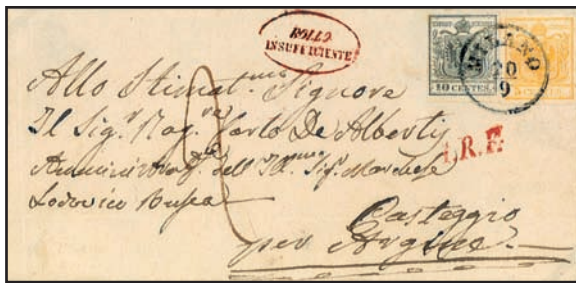 BOLLO
INSUFFICIENTE
10 CENTES.
MILANO
20
9
Allo Stimat.mo Signore
Il Sig.r Rag.re Carlo De Alberti
dell' Ill.mo Sig. Marchese
Lodovico
2
Casteggio
per Argine